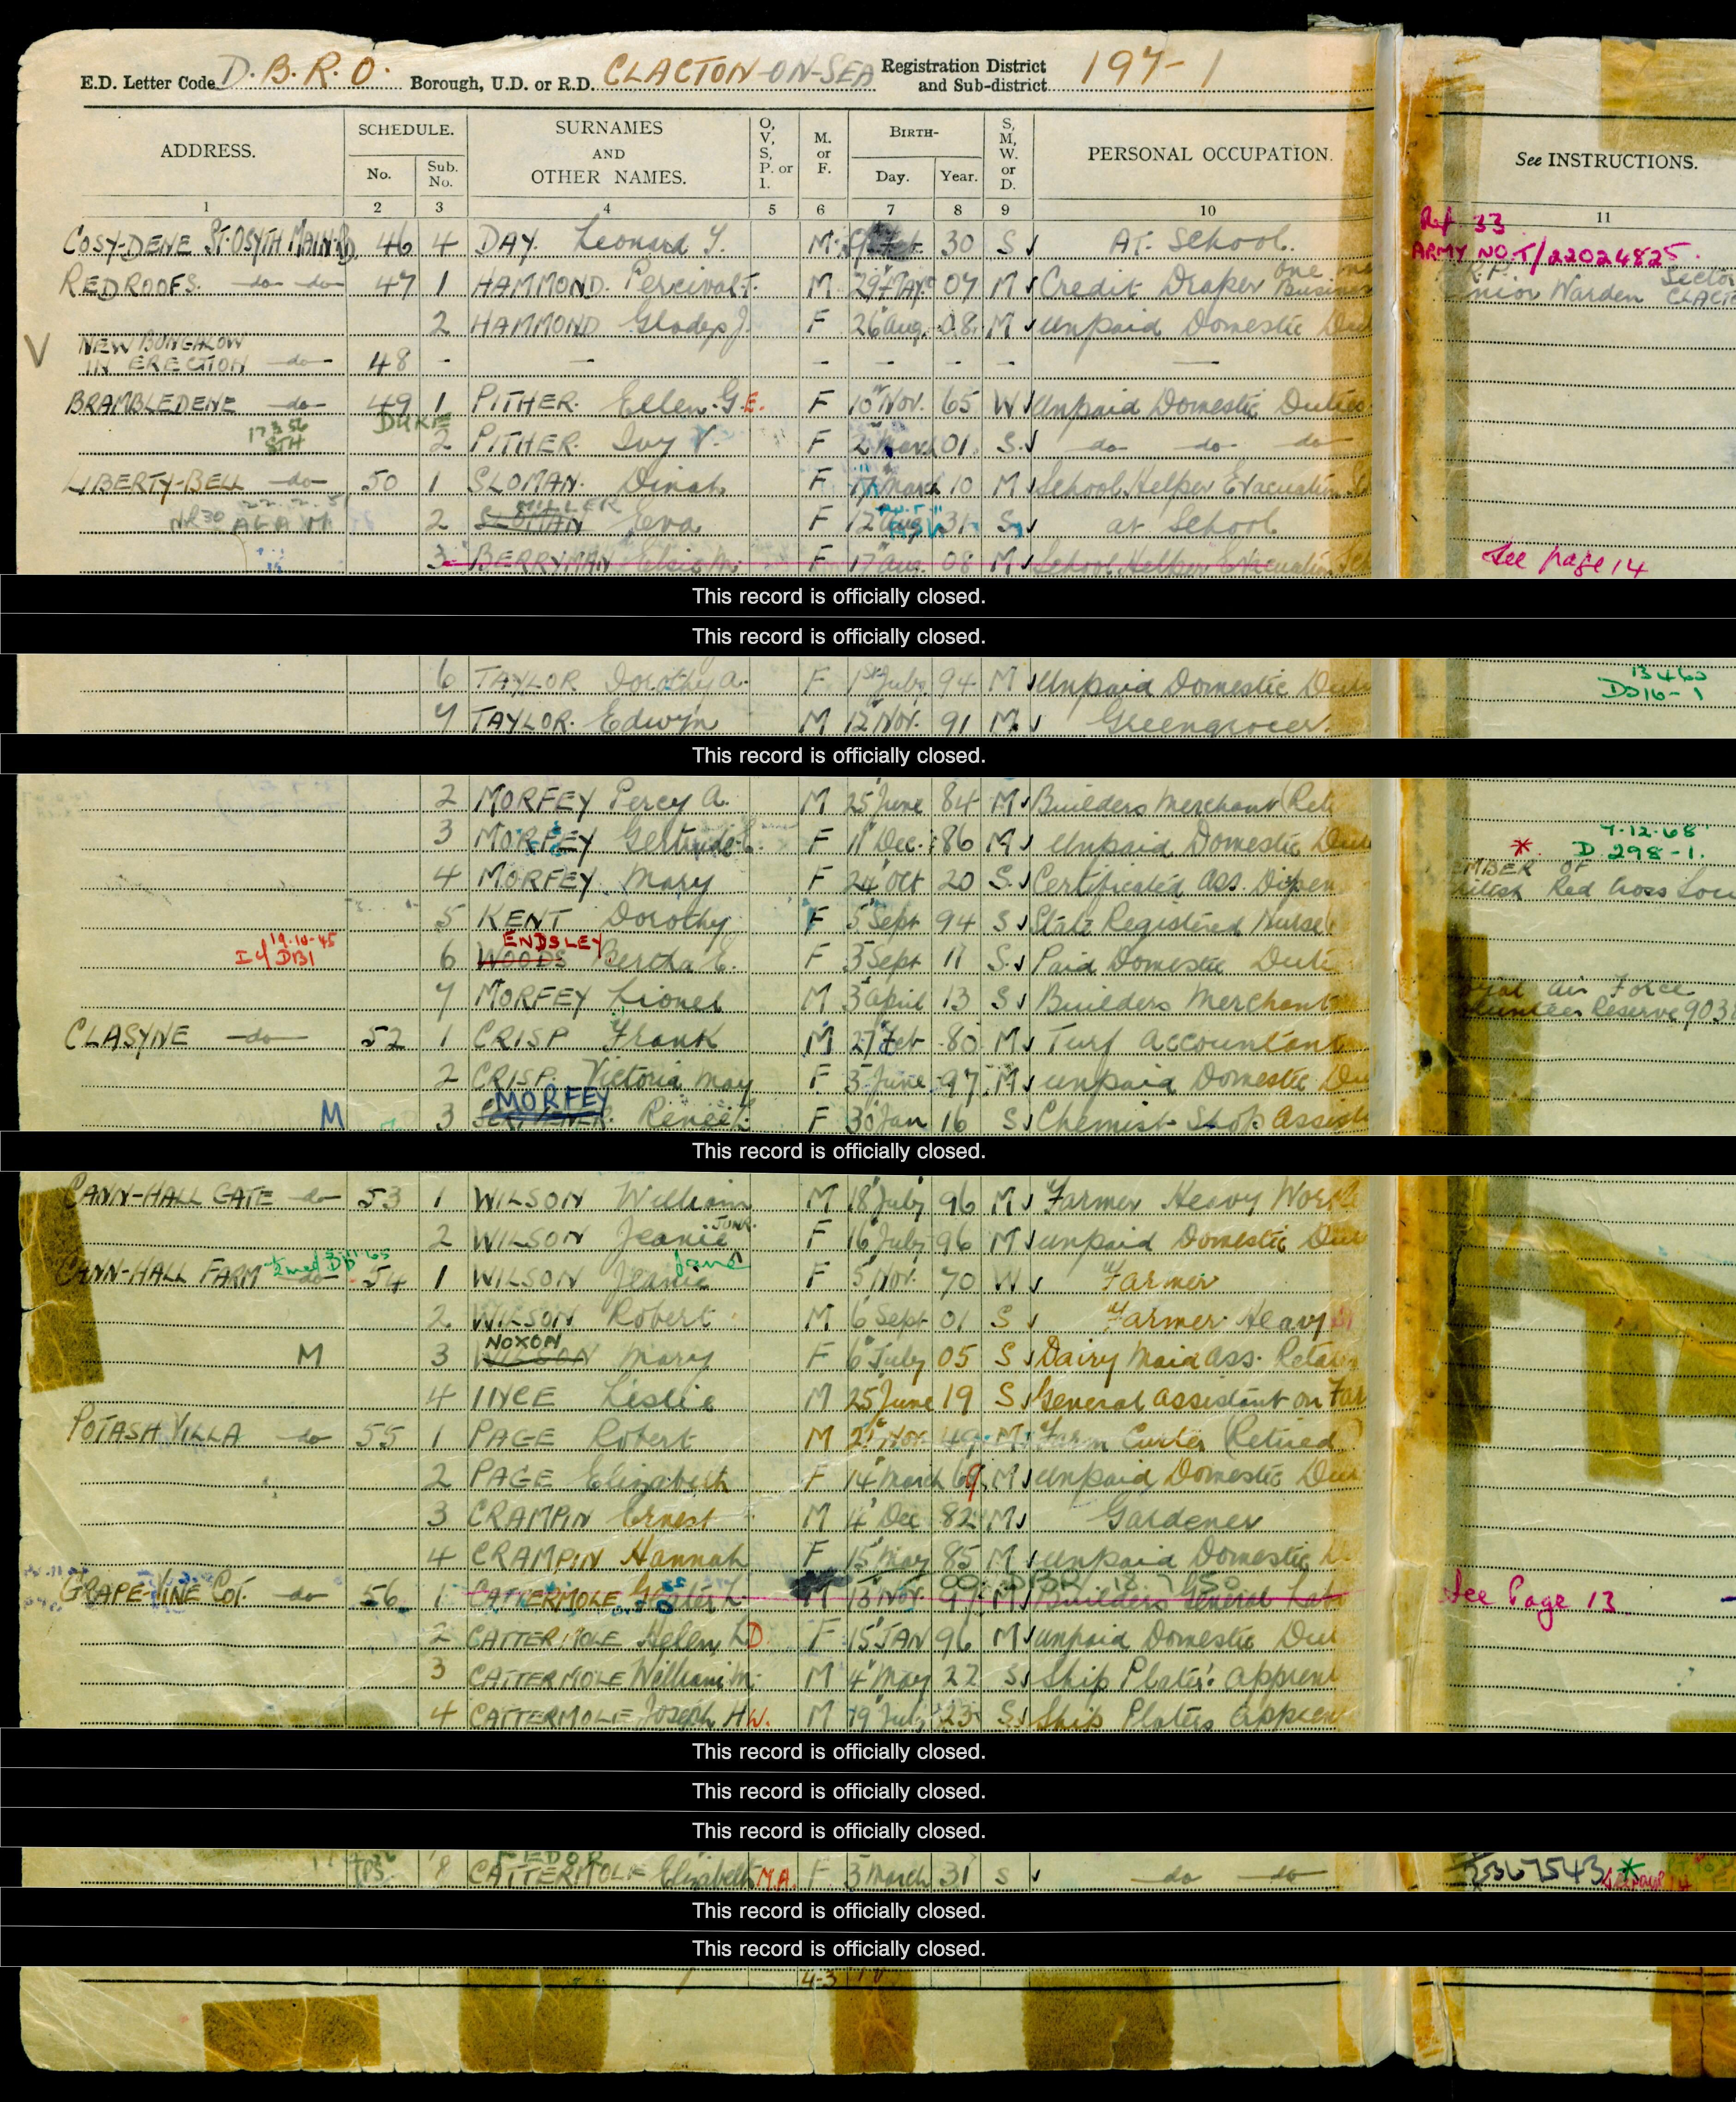 E.D. Letter Code D.B.R.O. Borough, U.D. or R.D. CLACTON-ON-SEA Registration District and Sub-district 197-1
ADDRESS. SCHEDULE. No. Sub. No. SURNAMES AND OTHER NAMES. O, V, S, P. or I. M. or F. BIRTH- Day. Year. S, M, W. or D. PERSONAL OCCUPATION. See INSTRUCTIONS.
1 2 3 4 5 6 7 8 9 10 11
Ref 33
COSY-DENE ST. OSYTH MAIN RD 46 4 DAY. Leonard M 30 S At School. ARMY NO T/22024825.
REDROOFS. do do 47 1 HAMMOND. Percival M 29 May 07 M Credit Draper One Warden
2 HAMMOND Gladys J. F 26 Aug. 08 M Unpaid Domestic
V NEW BUNGALOW
IN ERECTION do 48 - - - - - - -
BRAMBLEDENE do 49 1 PITHER. Ellen. G E. F 10 Nov. 65 W Unpaid Domestic Duties
DUKE
2 PITHER. Ivy V. F 2 March 01 S. do do do
LIBERTY-BELL do 50 1 SLOMAN. Dinah F 17 March 10 M School Helper Evacuation
MILLER
2 SLOMAN Eva F 12 Aug 31 S at School
3 BERRYMAN Elsie M. F 17 Aug. 08 M School Helper Evacuation See page 14
This record is officially closed.
This record is officially closed.
6 TAYLOR Dorothy A. F 1st July 94 M Unpaid Domestic
7 TAYLOR. Edwin M 12 Nov. 91 M. Greengrocer.
This record is officially closed.
2 MORFEY Percy A. M 25 June 84 M Builders Merchant
3 MORFEY F 11 Dec. 86 M Unpaid Domestic 7.12.68 D 298-1.
4 MORFEY Mary F 24 Oct 20 S. Certificated Ass. OF Red Cross
5 KENT Dorothy F 5 Sept 94 S State Registered Nurse
19.10.45 ENDSLEY
6 WOODS Bertha E. F 3 Sept 11 S. Paid Domestic
7 MORFEY Lionel M 3 April 13 S Builders Merchant Air Force Reserve
CLASYNE do 52 1 CRISP Frank M 27 Feb 80 M Turf Accountant
2 CRISP. Victoria May F 3 June 97 M unpaid Domestic
MORFEY
M 3 F 30 Jan 16 S Chemist Shop
This record is officially closed.
CANN-HALL GATE do 53 1 WILSON William M 18 July 96 M Farmer Heavy
2 WILSON Jeanie JUNR. F 16 July 96 M unpaid Domestic
CANN-HALL FARM do 54 1 WILSON Jeanie Jane F 5 Nov. 70 W Farmer
2 WILSON Robert M 6 Sept 01 S Farmer Heavy
NOXON
M 3 WILSON Mary F 6 July 05 S Dairy Maid Ass.
4 INCE Leslie M 25 June 19 S General Assistant on
POTASH VILLA do 55 1 PAGE Robert M Nov. 49 M Farm (Retired)
2 PAGE Elizabeth F 14 March 69 M unpaid Domestic
3 CRAMPIN Ernest M 4 Dec 82 M Gardener
4 CRAMPIN Hannah F 15 May 85 M unpaid Domestic
GRAPE-VINE Cot. do 56 1 CATTERMOLE M 13 Nov. 97 M Builders General See Page 13
2 CATTERMOLE Helen L D. F 15 JAN 96 M unpaid Domestic
3 CATTERMOLE William M. M 4 May 22 S Ship Plater
4 CATTERMOLE Joseph H W. M 19 July 23 S Ship Platers
This record is officially closed.
This record is officially closed.
This record is officially closed.
8 CATTERMOLE Elizabeth M.A. F 3 March 31 S do do
This record is officially closed.
This record is officially closed.